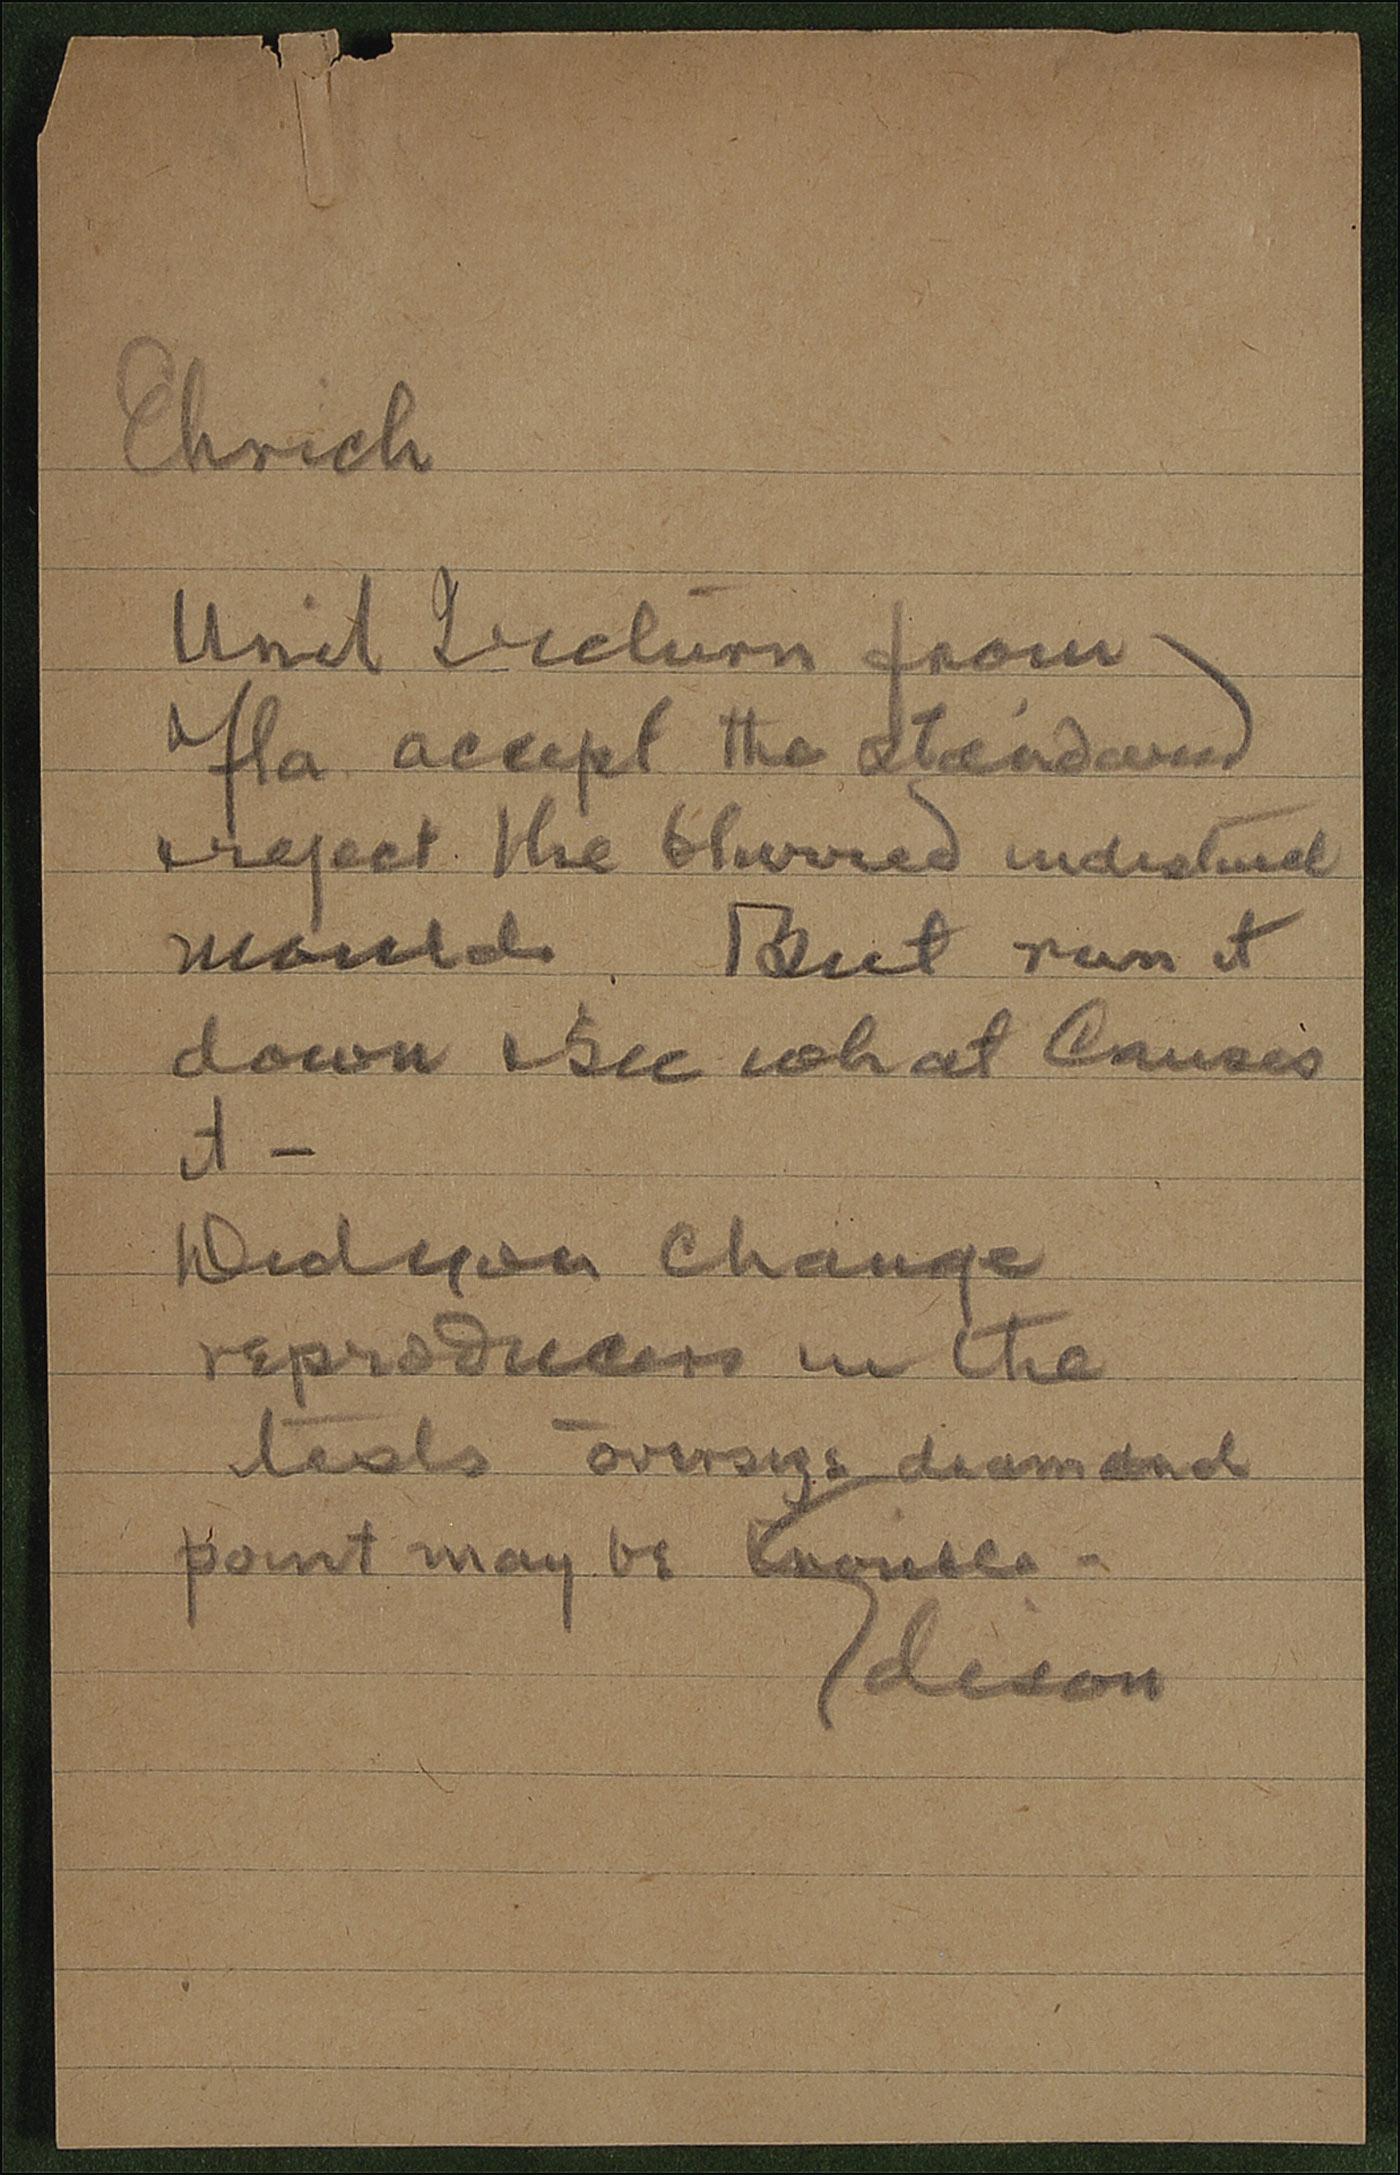 Ehrich
Until I return from
Fla accept the standard
& reject the blurred indistinct
moulds. But run it
down & see what Causes
it —
Did you change
reproducers in the
tests oversize diamond
point may be trouble -
Edison